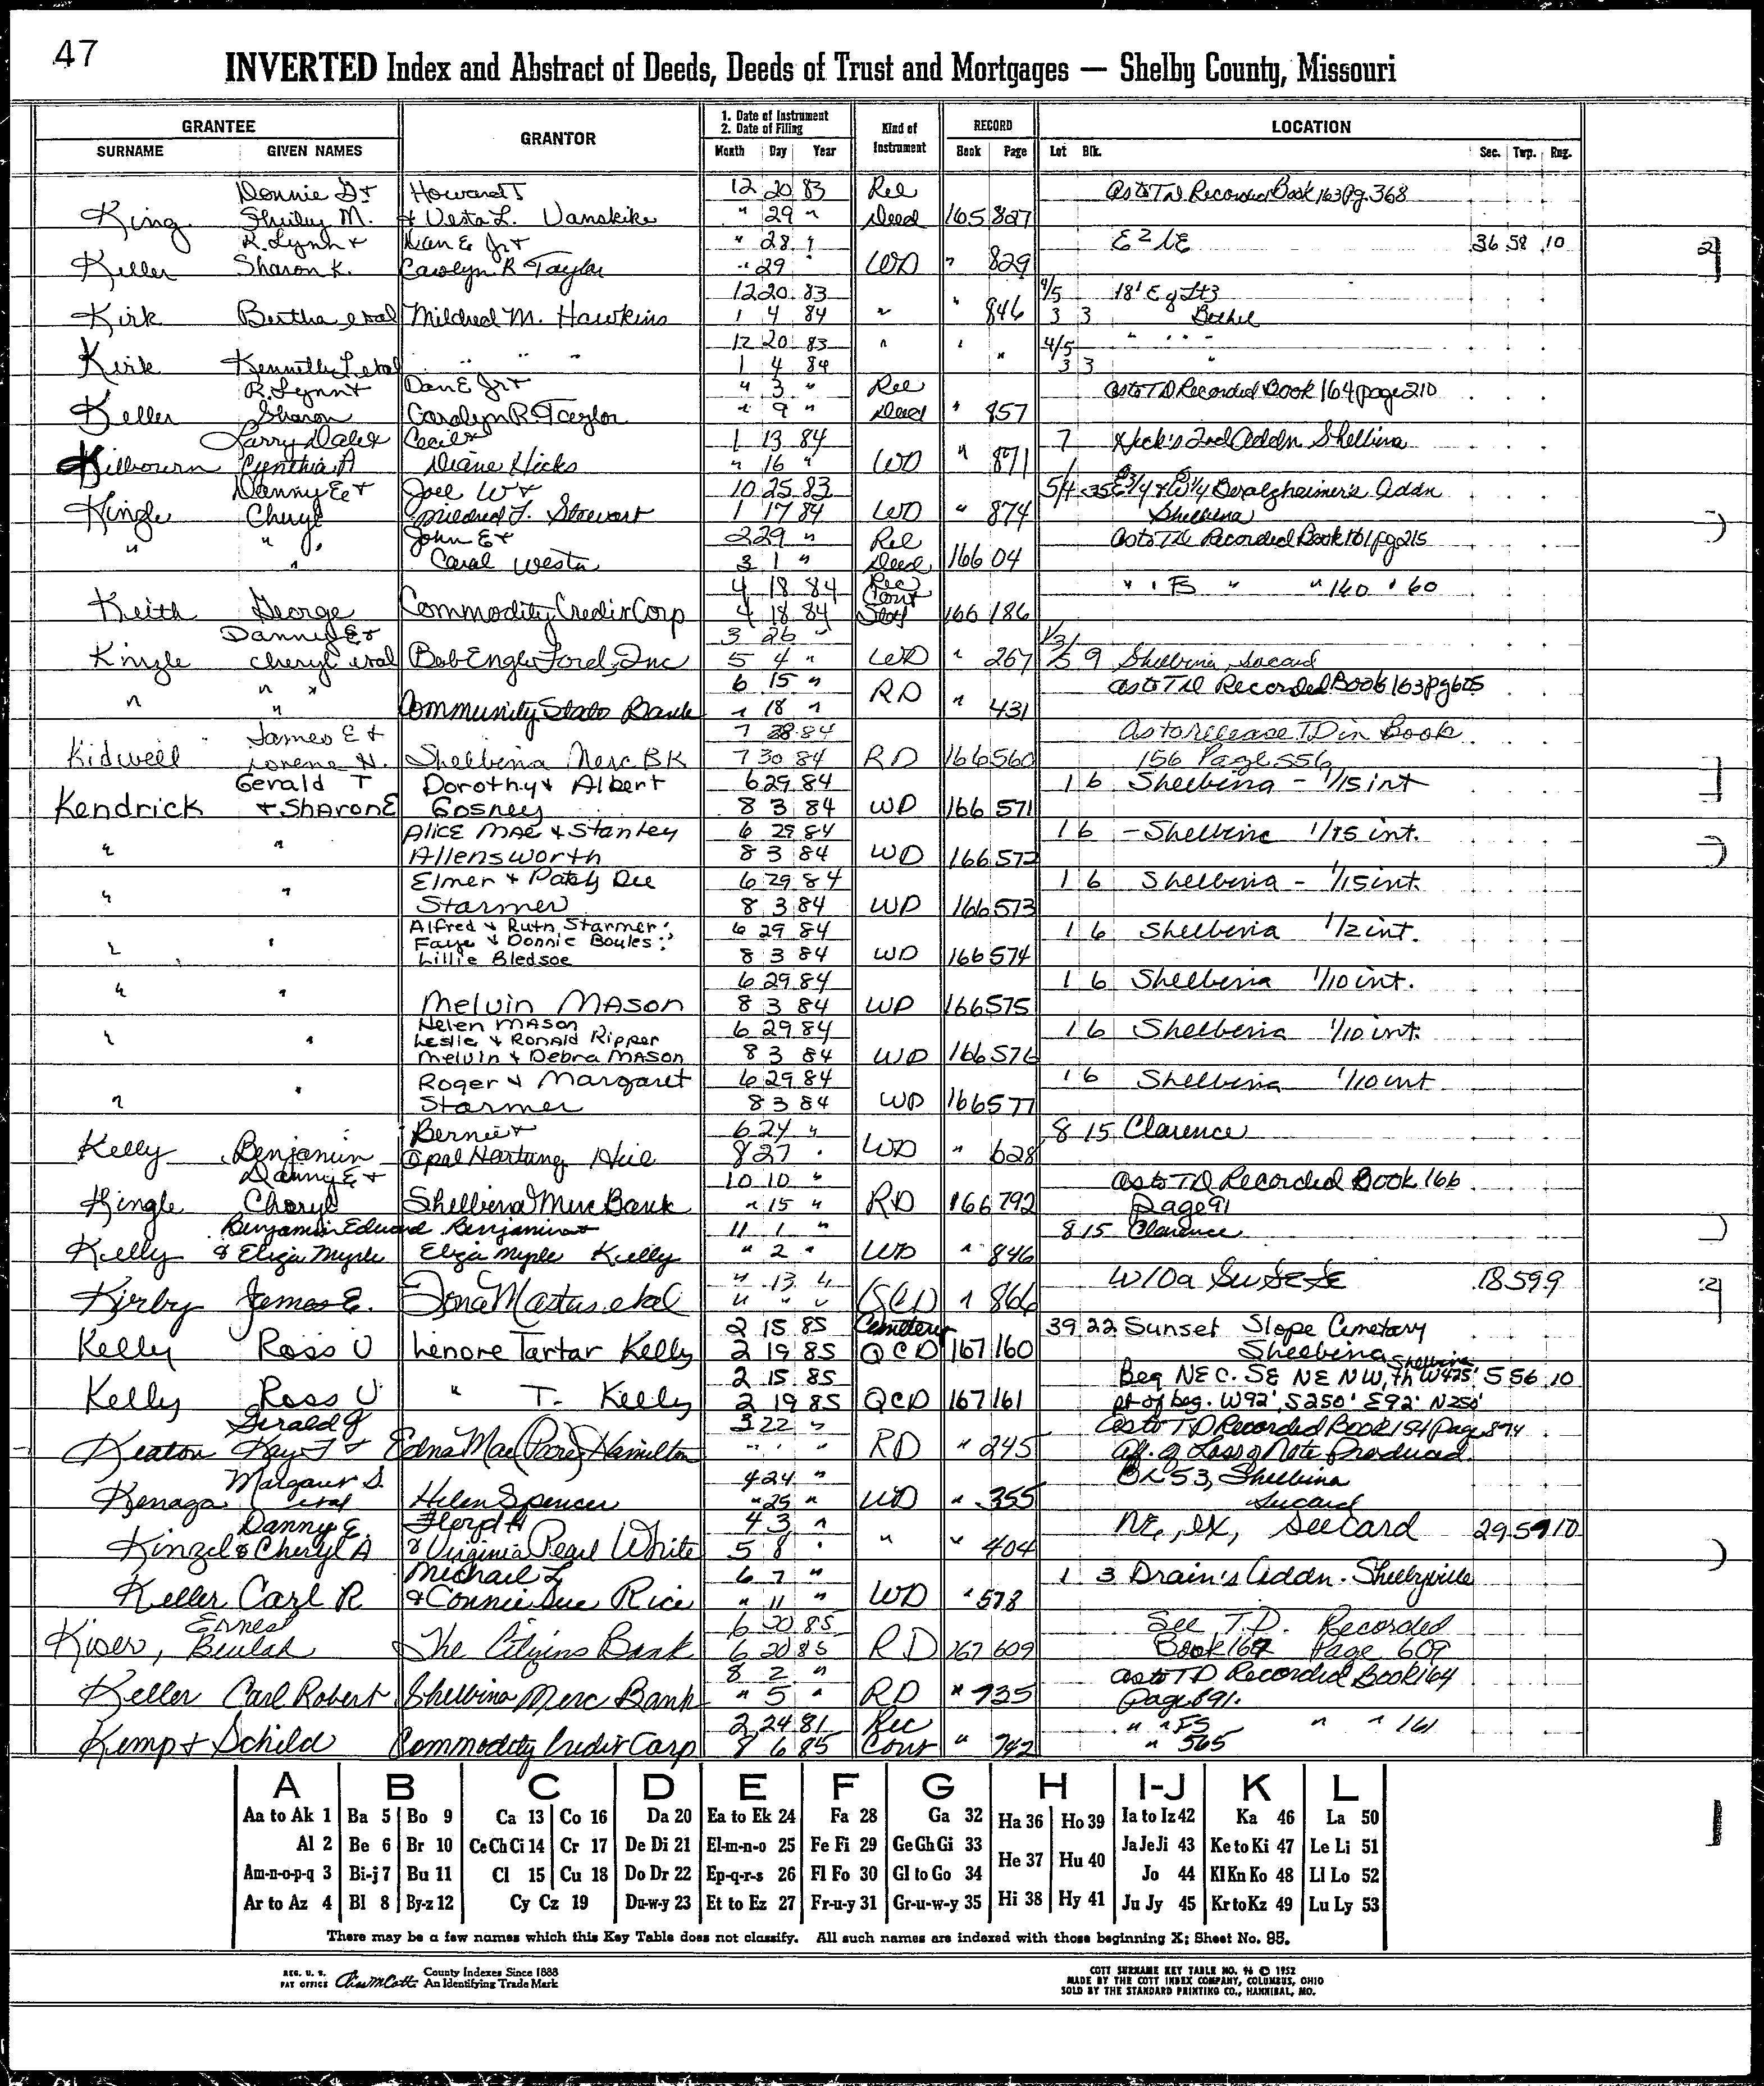 47
INVERTED Index and Abstract of Deeds, Deeds of Trust and Mortgages — Shelby County, Missouri
GRANTEE GRANTOR 1. Date of Instrument 2. Date of Filing Kind of Instrument RECORD LOCATION
SURNAME GIVEN NAMES Month Day Year Book Page Lot Blk. Sec. Twp. Rng.
Donnie D + Howard T 12 20 83 Rel as to TD Recorded Book 163 Pg. 368
King Shirley M. + Vesta L. Vanskike " 29 " Deed 165 827
R. Lynn + Dan E Jr + " 28 " E 2 NE 36 58 10
Keller Sharon K. Carolyn R Taylor " 29 " WD " 829
12 20 83 4/5 18' E of Lt 3
Kirk Bertha etal Mildred M. Hawkins 1 4 84 " " 846 3 3 Bethel
12 20 83 " " " 4/5 " " " "
Kirk Kenneth L etal " " " 1 4 84 3 3 "
R. Lynn + Dan E Jr + " 3 " Rel as to TD Recorded Book 164 page 210
Keller Sharon Carolyn R. Taylor " 9 " Deed " 857
Larry Dale + Cecil + 1 13 84 7 Hick's 2nd Addn Shelbina
Kilbourn Cynthia A Diane Hicks " 16 " WD " 871
Danny E + Joel W + 10 25 83 5/4 35 E 3/4 + W 1/4 Addn
Kingle Cheryl Mildred L. Stewart 1 17 84 WD " 874 Shelbina
" " John E + 2 29 " Rel as to TD Recorded Book 161 pg 215
" Carol Westa 3 1 " Deed 166 04
4 18 84 Rec " " FS " " 160 " 60
Keith George Commodity Credit Corp 4 18 84 Cont 166 186
Danny E + 3 26 " 1/3/
Kinzle Cheryl etal Bob Engle Ford, Inc 5 4 " WD " 267 5 9 Shelbina, See card
" " " 6 15 " RD as to TD Recorded Book 163 Pg 605
" Community State Bank " 18 " " 431
James E + 7 28 84 As to release TD in Book
Kidwell Lorene N. Shelbina Merc BK 7 30 84 RD 166 560 156 Page 556
Gerald T Dorothy + Albert 6 29 84 1 6 Shelbina - 1/15 int
Kendrick + Sharon E Gosney 8 3 84 WD 166 571
Alice Mae + Stanley 6 29 84 1 6 - Shelbina 1/15 int.
" " Allensworth 8 3 84 WD 166 572
Elmer + Patsy Dee 6 29 84 1 6 Shelbina - 1/15 int.
" " Starmer 8 3 84 WD 166 573
Alfred + Ruth Starmer; 6 29 84 1 6 Shelbina 1/2 int.
Faye + Donnie Boules;
" " Lillie Bledsoe 8 3 84 WD 166 574
6 29 84 1 6 Shelbina 1/10 int.
" " Melvin Mason 8 3 84 WD 166 575
Helen Mason 6 29 84 1 6 Shelbina 1/10 int.
Leslie + Ronald Ripper
" " Melvin + Debra Mason 8 3 84 WD 166 576
Roger + Margaret 6 29 84 1 6 Shelbina 1/10 int
" " Starmer 8 3 84 WD 166 577
Bernie + 6 24 " 8 15 Clarence
Kelly Benjamin Opal Hartung 8 27 " WD " 628
Danny E + 10 10 " as to TD Recorded Book 166
Kingle Cheryl Shelbina Merc Bank " 15 " RD 166 792 Page 91
Benjamin Edward Benjamin + 11 1 " 8 15 Clarence
Kelly & Eliza Myrle Eliza Myrle Kelly " 2 " WD " 846
" 13 " W 10a SW SE SE 18 59 9
Kirby James E. Mastus etal " " " QCD " 866
2 15 85 Cemetery 39 22 Sunset Slope Cemetary
Kelly Ross U Lenore Tartar Kelly 2 19 85 QCD 167 160 Shelbina
2 15 85 Beg NE C. SE NE NW, th W 425' Shelbina 5 56 10
Kelly Ross U " T. Kelly 2 19 85 QCD 167 161 pt of beg. W 92', S 250' E 92' N 250'
Gerald J 3 22 " as to TD Recorded Book 154 page 874
Keaton Kay J + Edna Mae (Poore) Hamilton " " " RD " 245 Aff. of Loss of Note Produced.
Margaret S. 4 24 " BK 53, Shelbina
Kenaga etal Helen Spencer " 25 " WD " 355 See card
Danny E. Floyd H 4 3 " NE, ex, See Card 29 59 10
Kinzel & Cheryl A & Virginia Pearl White 5 8 " " " 404
Michael L 6 7 " 1 3 Drain's Addn. Shelbyville
Keller Carl R & Connie Sue Rice " 11 " WD " 578
Ernest 6 20 85 See T.D. Recorded
Kiser, Beulah The Citizens Bank 6 20 85 RD 167 609 Book 167 Page 609
8 2 " as to TD Recorded Book 164
Keller Carl Robert Shelbina Merc Bank " 5 " RD " 735 Page 891.
2 24 81 Rec " " FS " " 161
Kemp + Schild Commodity Credit Corp 8 6 85 Cont " 742 " 565
A B C D E F G H I-J K L
Aa to Ak 1 Ba 5 Bo 9 Ca 13 Co 16 Da 20 Ea to Ek 24 Fa 28 Ga 32 Ha 36 Ho 39 Ia to Iz 42 Ka 46 La 50
Al 2 Be 6 Br 10 Ce Ch Ci 14 Cr 17 De Di 21 El-m-n-o 25 Fe Fi 29 Ge Gh Gi 33 He 37 Hu 40 Ja Je Ji 43 Ke to Ki 47 Le Li 51
Am-n-o-p-q 3 Bi-j 7 Bu 11 Cl 15 Cu 18 Do Dr 22 Ep-q-r-s 26 Fl Fo 30 Gl to Go 34 Hi 38 Hy 41 Jo 44 Kl Kn Ko 48 Ll Lo 52
Ar to Az 4 Bl 8 By-z 12 Cy Cz 19 Du-w-y 23 Et to Ez 27 Fr-u-y 31 Gr-u-w-y 35 Ju Jy 45 Kr to Kz 49 Lu Ly 53
There may be a few names which this Key Table does not classify. All such names are indexed with those beginning X; Sheet No. 95.
REG. U. S. PAT OFFICE County Indexes Since 1888 An Identifying Trade Mark
COTT SURNAME KEY TABLE NO. 96 © 1952
MADE BY THE COTT INDEX COMPANY, COLUMBUS, OHIO
SOLD BY THE STANDARD PRINTING CO., HANNIBAL, MO.